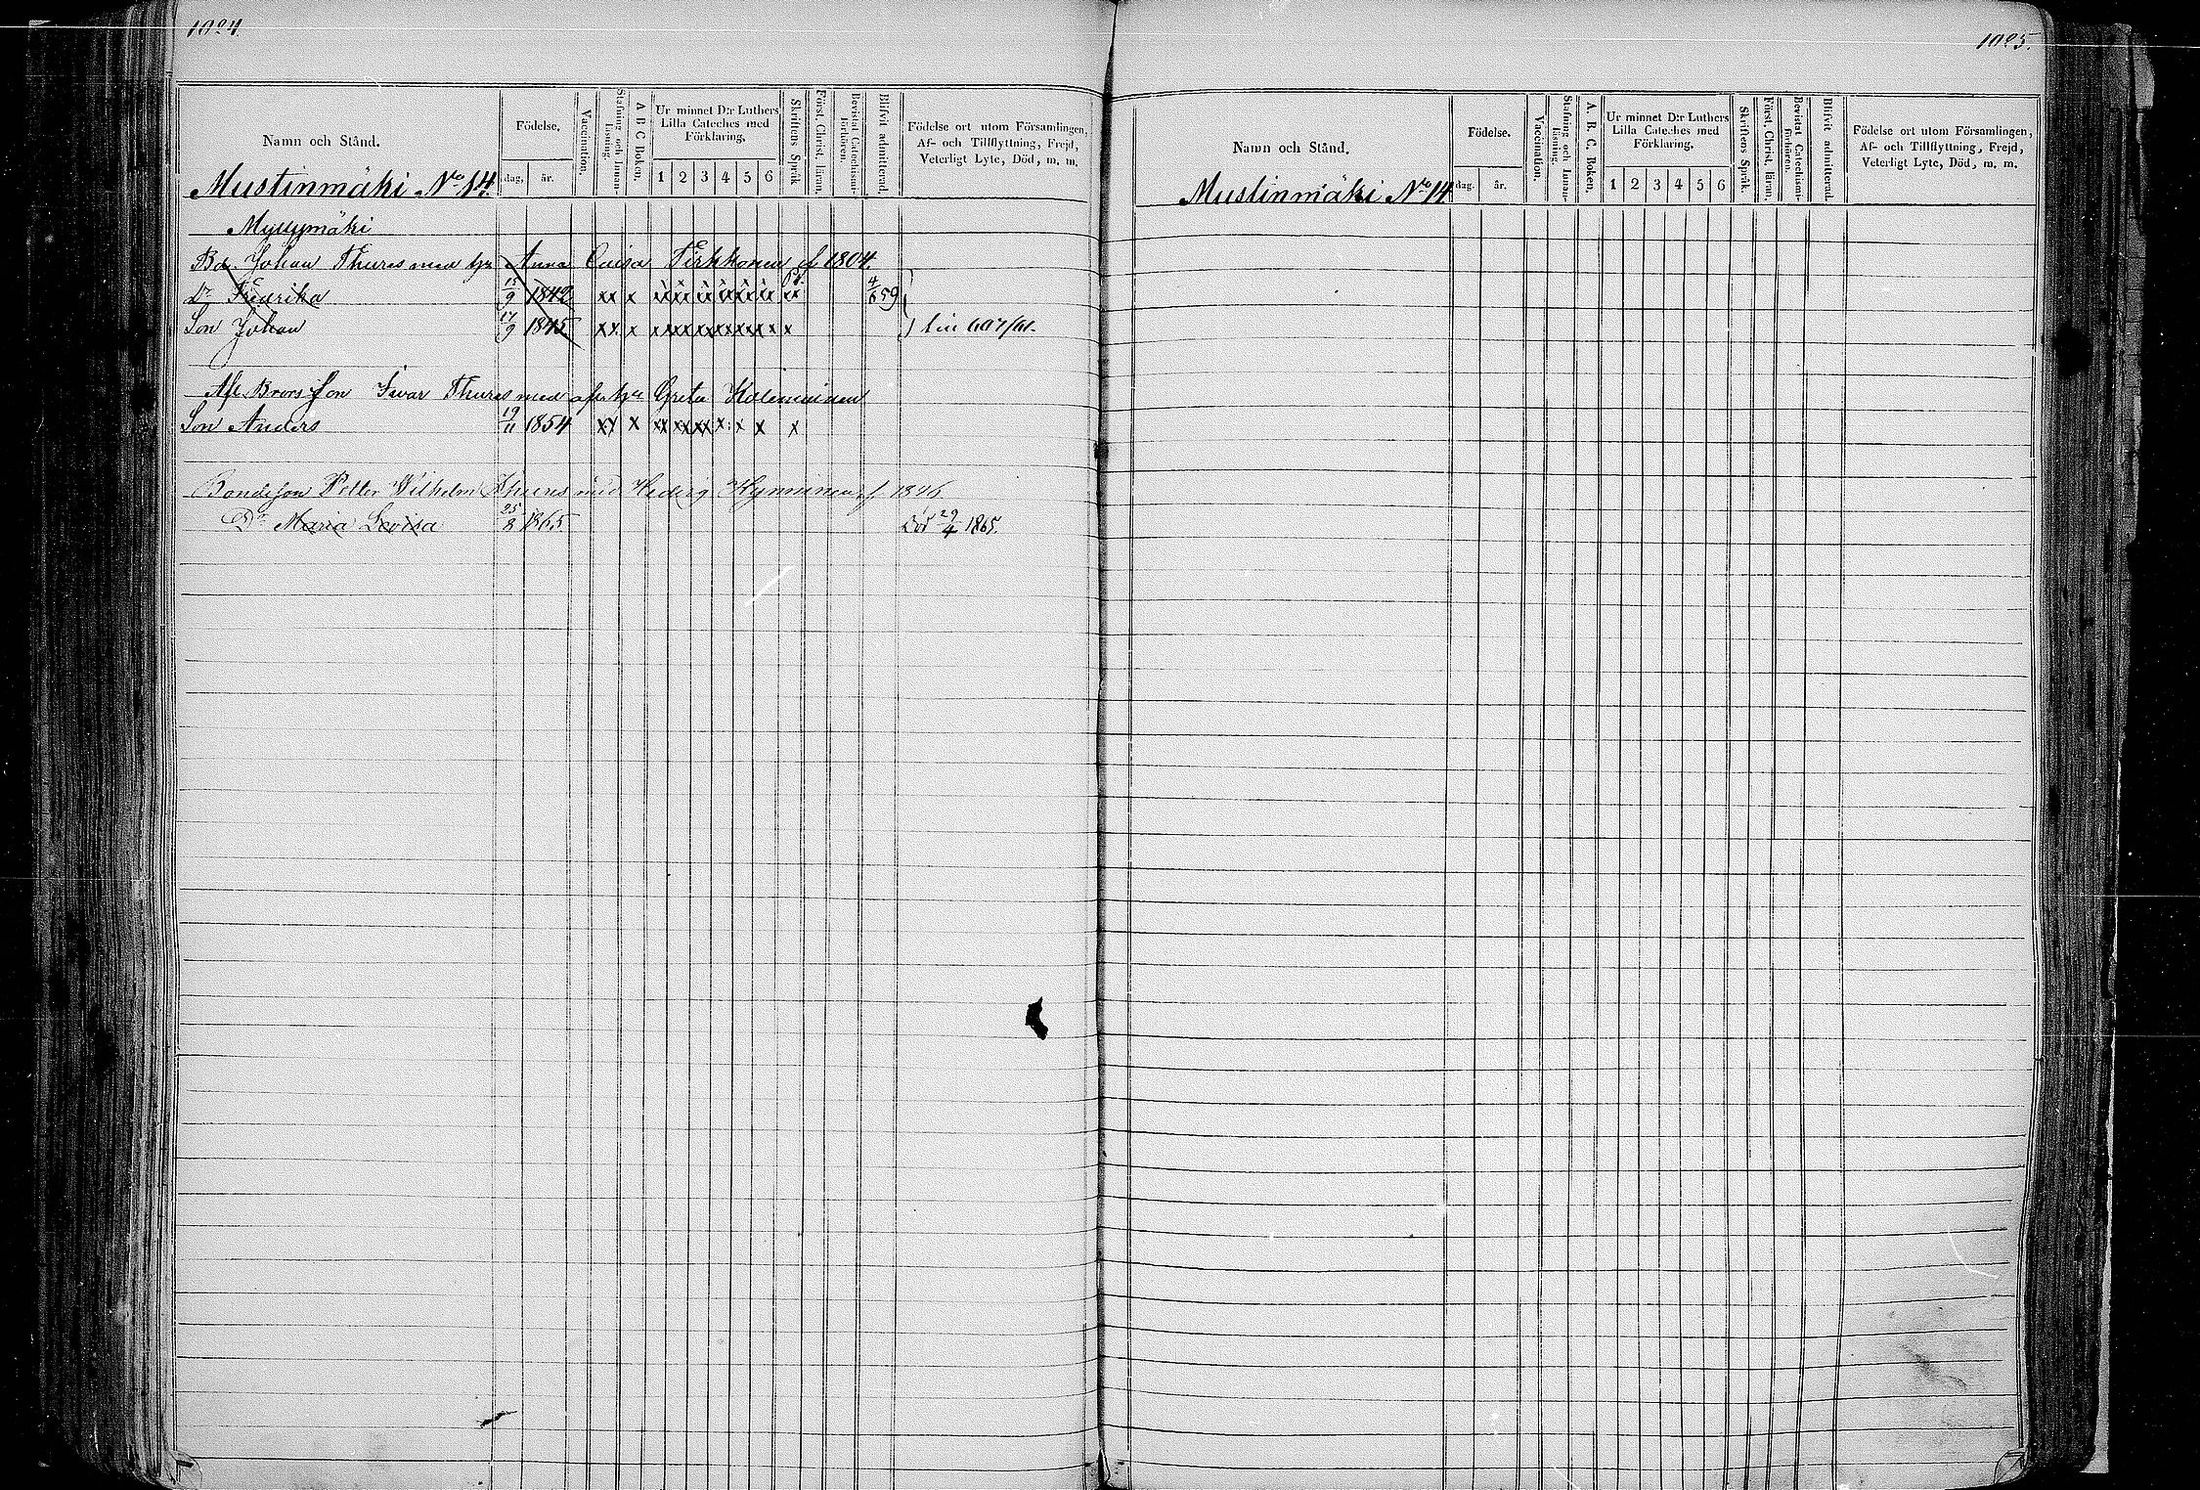 1024.
Namn och Stånd.
Födelse.
dag.
år.
Vaccination.
Stafning och Innan-läsning.
A B C Boken.
Ur minnet D:r Luthers
Lilla Cateches med
Förklaring.
1 2 3 4 5 6
Skriftens Språk
Först. Christ. läran.
Bevistat Catechismi-förhören.
Blifvit admitterad.
Födelse ort utom Församlingen,
Af- och Tillflyttning, Frejd,
Veterligt Lyte, Död, m. m.
Mustinmäki No 14.
Myllymäki
Bd. Johan Thures med hu Anna Luisa Tirkkonen f 1804.
Dr Fredrika 15/9 1842 xx x 4/6 59
Son Johan 17/9 1845 xx x
Afl. Brors Son Ivar Thures med afl Greta Kolemainen
Son Anders 19/11 1854 xx x
Bondeson Petter Wilhelm Thures med Hedvig Hynninen f. 1846
Dr Maria Lovisa 25/8 1865 Död 29/4 1865.
1025.
Namn och Stånd.
Födelse.
dag.
år.
Vaccination.
Stafning och Innan-läsning.
A. B. C. Boken.
Ur minnet D:r Luthers
Lilla Cateches med
Förklaring.
1 2 3 4 5 6
Skriftens Språk.
Först. Christ. läran.
Bevistat Catechismi-förhören.
Blifvit admitterad.
Födelse ort utom Församlingen,
Af- och Tillflyttning, Frejd,
Veterligt Lyte, Död, m. m.
Mustinmäki No 14